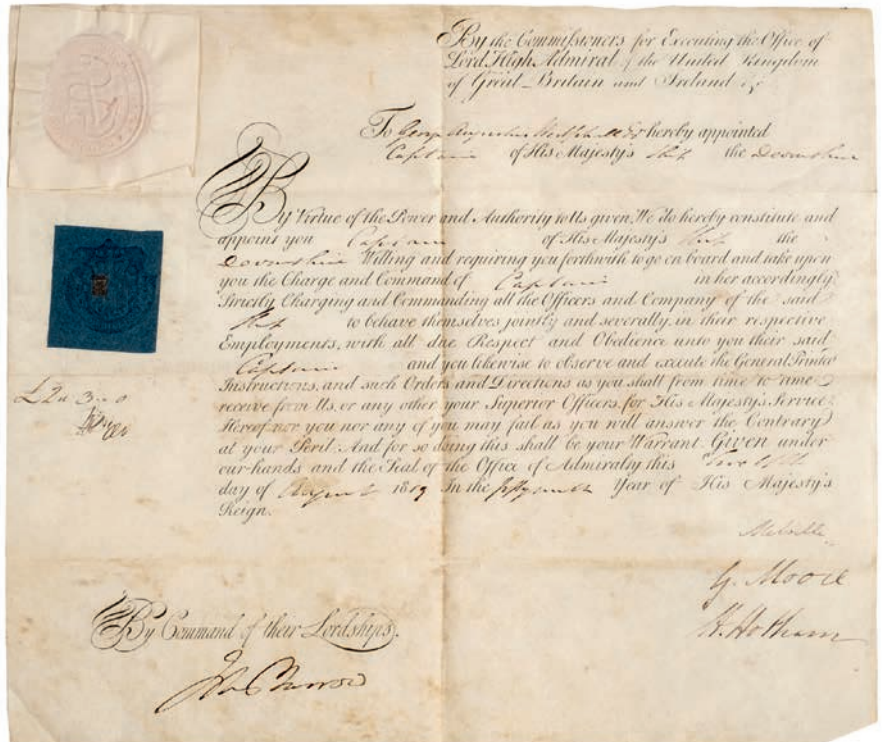 By the Commissioners for Executing the Office of
Lord High Admiral of the United Kingdom
of Great-Britain and Ireland &c
To George Augustus Westphall Esqr hereby appointed
Captain of His Majesty's Ship the Devonshire
By Virtue of the Power and Authority to Us given, We do hereby constitute and
appoint you Captain of His Majesty's Ship the
Devonshire Willing and requiring you forthwith to go on board and take upon
you the Charge and Command of Captain in her accordingly;
Strictly Charging and Commanding all the Officers and Company of the said
Ship to behave themselves jointly and severally in their respective
Employments, with all due Respect and Obedience unto you their said
Captain and you likewise to observe and execute the General Printed
Instructions, and such Orders and Directions as you shall from time to time
receive from Us, or any other your Superior Officers, for His Majesty's Service;
Hereof nor you nor any of you may fail as you will answer the Contrary
at your Peril. And for so doing this shall be your Warrant. Given under
our hands and the Seal of the Office of Admiralty this Twelfth
day of August 1819 In the fifty ninth Year of His Majesty's
Reign.
Melville
G. Moore
H. Hotham
By Command of their Lordships.
Jn Barrow